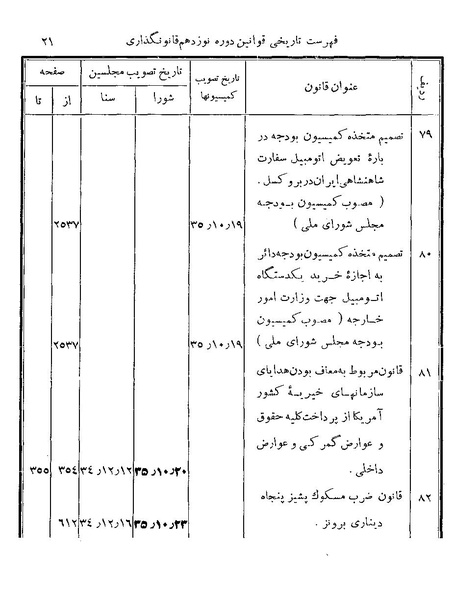 فهرست تاریخی قوانین دوره نوزدهم قانونگذاری ۲۱
ردیف عنوان قانون تاریخ تصویب کمیسیونها تاریخ تصویب مجلسین صفحه
شورا سنا از تا
۷۹ تصمیم متخذه کمیسیون بودجه در
بارهٔ تعویض اتومبیل سفارت
شاهنشاهی ایران در بروکسل .
( مصوب کمیسیون بودجه
مجلس شورای ملی ) ۳۵٫۱۰٫۱۹ ۲۵۳۷
۸۰ تصمیم متخذه کمیسیون بودجه دائر
به اجازهٔ خرید یکدستگاه
اتومبیل جهت وزارت امور
خارجه ( مصوب کمیسیون
بودجه مجلس شورای ملی ) ۳۵٫۱۰٫۱۹ ۲۵۳۷
۸۱ قانون مربوط به معاف بودن هدایای
سازمانهای خیریهٔ کشور
آمریکا از پرداخت کلیه حقوق
و عوارض گمرکی و عوارض
داخلی . ۳۵٫۱۰٫۲۰ ۳۴٫۱۲٫۱۲ ۳۵۴ ۳۵۵
۸۲ قانون ضرب مسکوک پشیز پنجاه
دیناری برونز . ۳۵٫۱۰٫۲۳ ۳۴٫۱۲٫۱۶ ۶۱۲